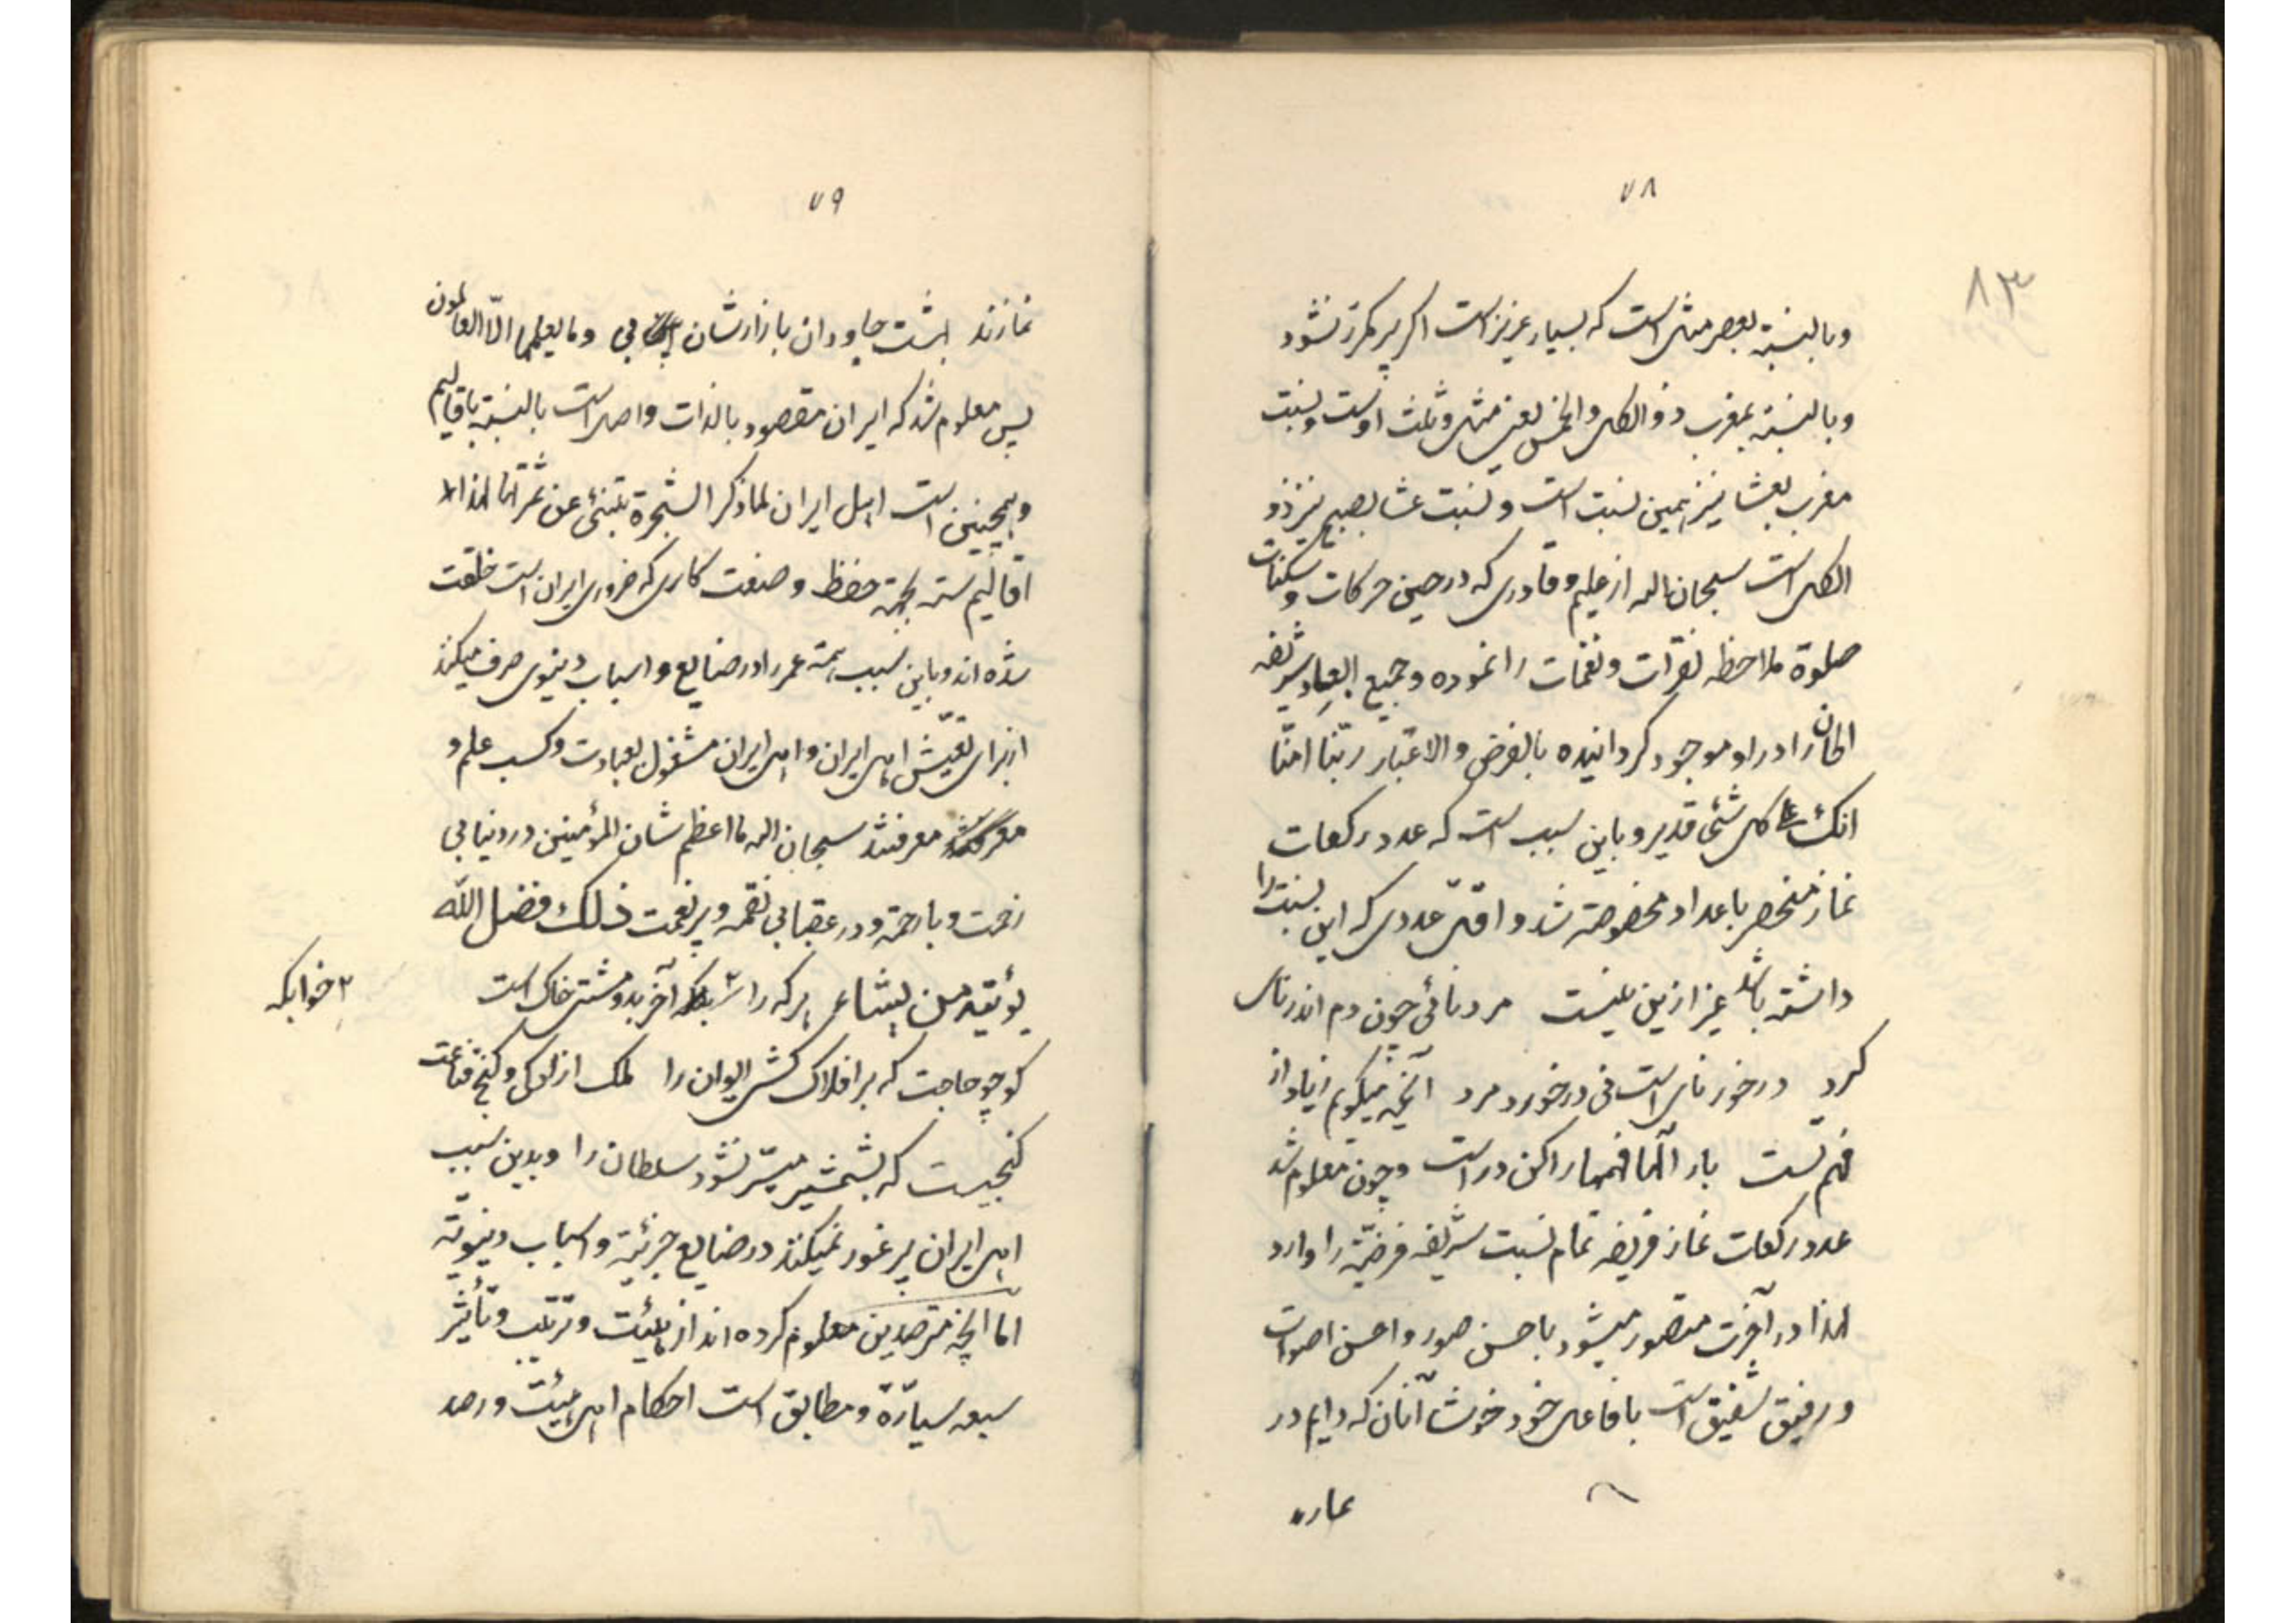 ۷۸
۸۳
وبالنسبة بعصر مثل است که بسیار عزیز است اگر پر مکرر نشود
وبالنسبة بمغرب ذو الکل والخمس یعنی مثل و ثلث اوست و نسبت
مغرب بعشا نیز همین نسبت است و نسبت عشا بصبح نیز ذو
الکل است سبحان الله از علیم و قادری که در حین حرکات و سکنات
صلوة ملاحظه نقرات و نغمات را نموده و جمیع ابعاد شریفه
الحان را در او موجود کردانیده بالفرض والاعتبار ربّنا امنّا
انک علی کل شئی قدیر و باین سبب است که عدد رکعات
نماز منحصر باعداد مخصوصه شد و اقلّ عددی که این نسبت را
داشته باشد غیر ازین نیست مرد نائی چون دم اندر نای
کرد درخور نای است نی درخورد مرد آنچه میکویم زیاد از
فهم تست بار الها فهمها را کن درست و چون معلوم شد
عدد رکعات نماز فریضه تمام نسبت شریفه فرضیّه را وارد
لهذا در آخرت متصور میشود باحسن صور و احسن اصوات
و رفیق شفیق است با فاعل خود خوشا آنان که دایم در
۷۹
نمازند بهشت جاودان بازارشان بی وما یعلمها الّا العالمون
پس معلوم شد که ایران مقصود بالذات و اصل است بالنسبة باقالیم
و همچنین است اهل ایران لما ذکر الشجرة تنبئی عن ثمرتها لهذا اهل
اقالیم سته بجهة حفظ و صنعت کاری که ضروری ایران است خلقت
شده اند و باین سبب همه عمر را در صنایع و اسباب دنیوی صرف میکنند
از برای تعیّش اهل ایران و اهل ایران مشغول بعبادت و کسب علم و
معرفتند سبحان الله ما اعظم شان المؤمنین در دنیا بی
زحمت و با رحمة و در عقبا بی نقمه و پر نعمت ذلک فضل الله
یؤتیه من یشاء هر که را ۲ آخر بدو مشتی خاک است
۲ خوابکه
کو چو حاجت که بر افلاک کشی ایوان را ملک ازادکی و کنج قناعت
کنجیست که بشمشیر میسّر نشود سلطان را و بدین سبب
اهل ایران پر غور نمیکنند در صنایع جزئیّه و اسباب دنیویّه
اما انچه مترصدین معلوم کرده اند از هیئت و ترتیب و تأثیر
سبعه سیّارة و مطابق است احکام اهل هیئت و رصد